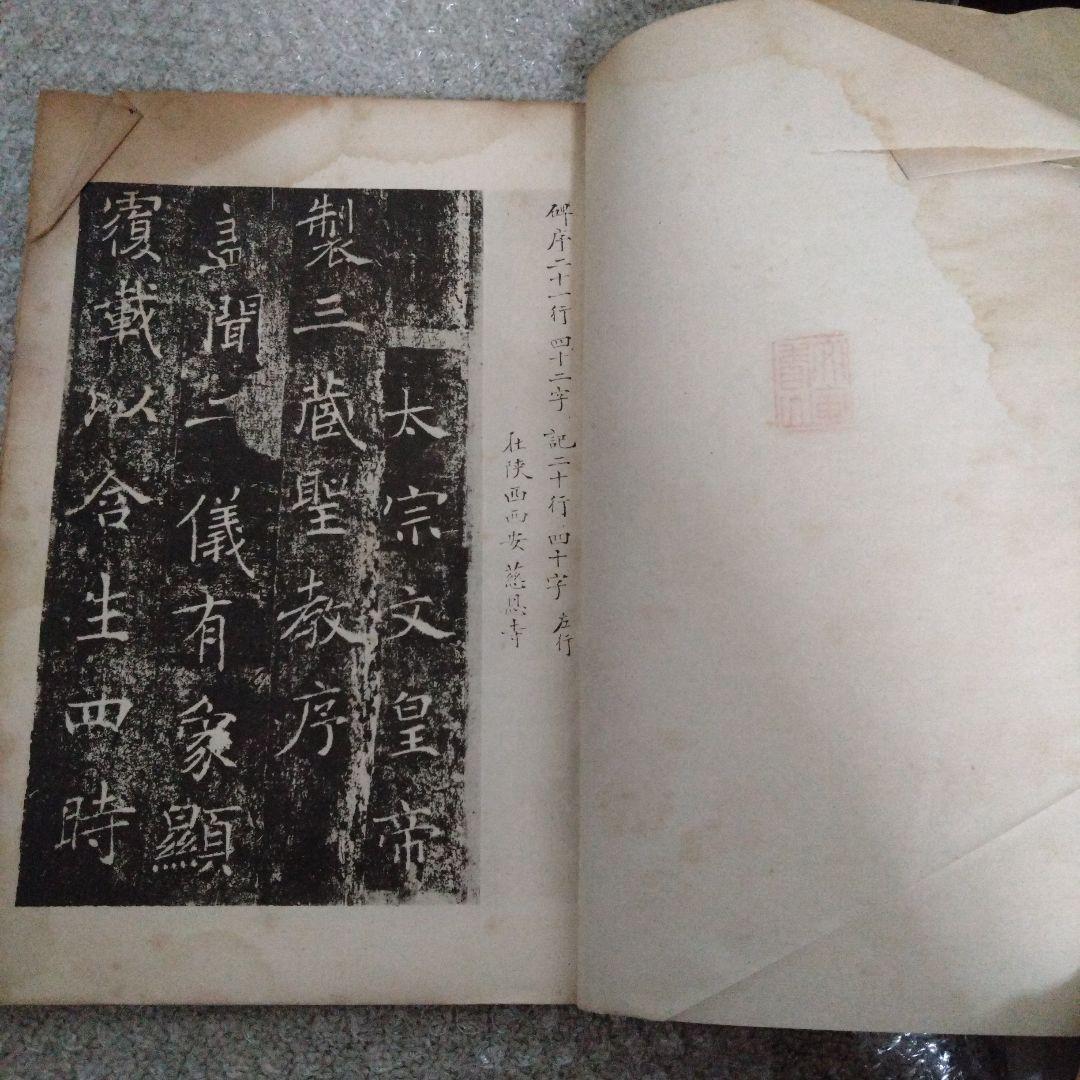 碑序二十一行四十二字、記二十行四十字 左行
在陝西西安慈恩寺
太宗文皇帝
製三蔵聖教序
盖聞二儀有象顯
覆載以含生四時